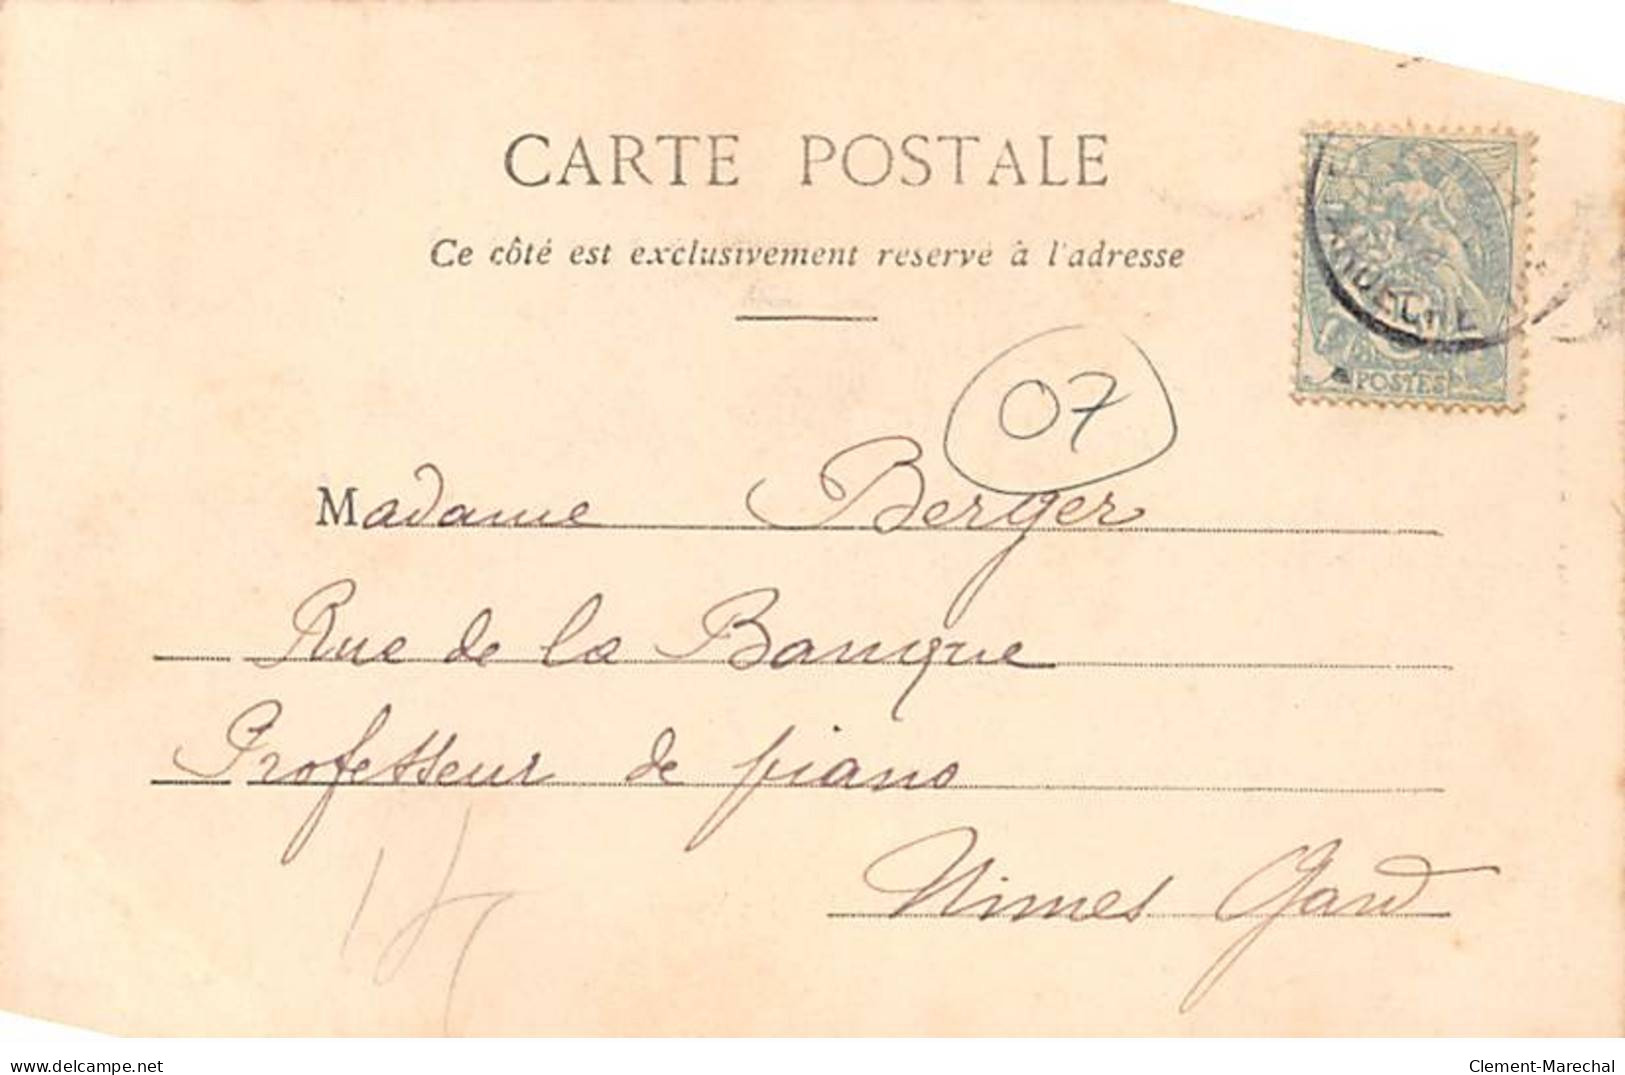 CARTE POSTALE
Ce côté est exclusivement reservé à l'adresse
ARDECHE
POSTES
07
Madame Berger
Rue de la Banque
Professeur de piano
Nimes Gard
17
www.delcampe.net
Clement-Marechal